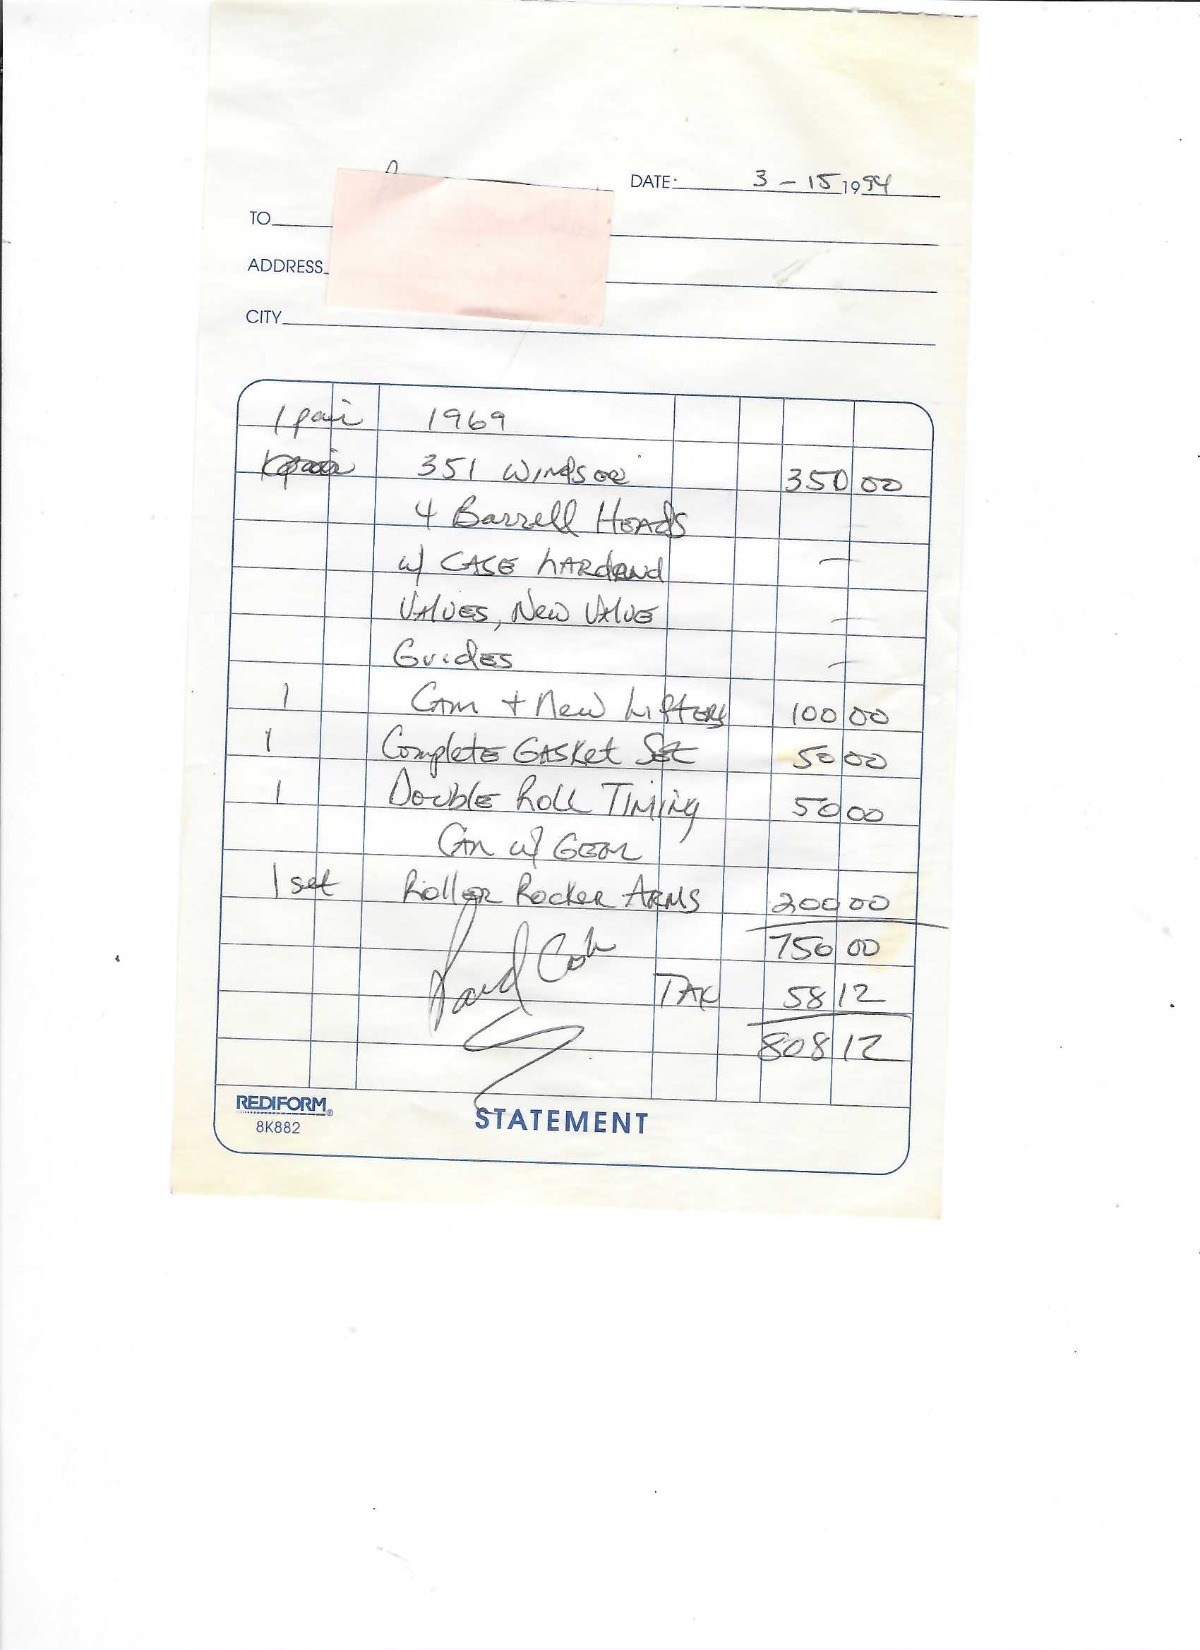 DATE: 3-15 1994
TO
ADDRESS
CITY
1 pair 1969
351 WINDSOR 350 00
4 Barrell HEADS
w/ CASE hARdend —
VAlVES, New VAlVE —
GuidES —
1 CAm + New LiFTERS 100 00
1 Complete GASKet SET 50 00
1 DoublE Roll TIMINg 50 00
w/ GEAR
1 set RollER RockER ARMS 200 00
750 00
Paid Cash TAX 58 12
808 12
REDIFORM®
8K882
STATEMENT